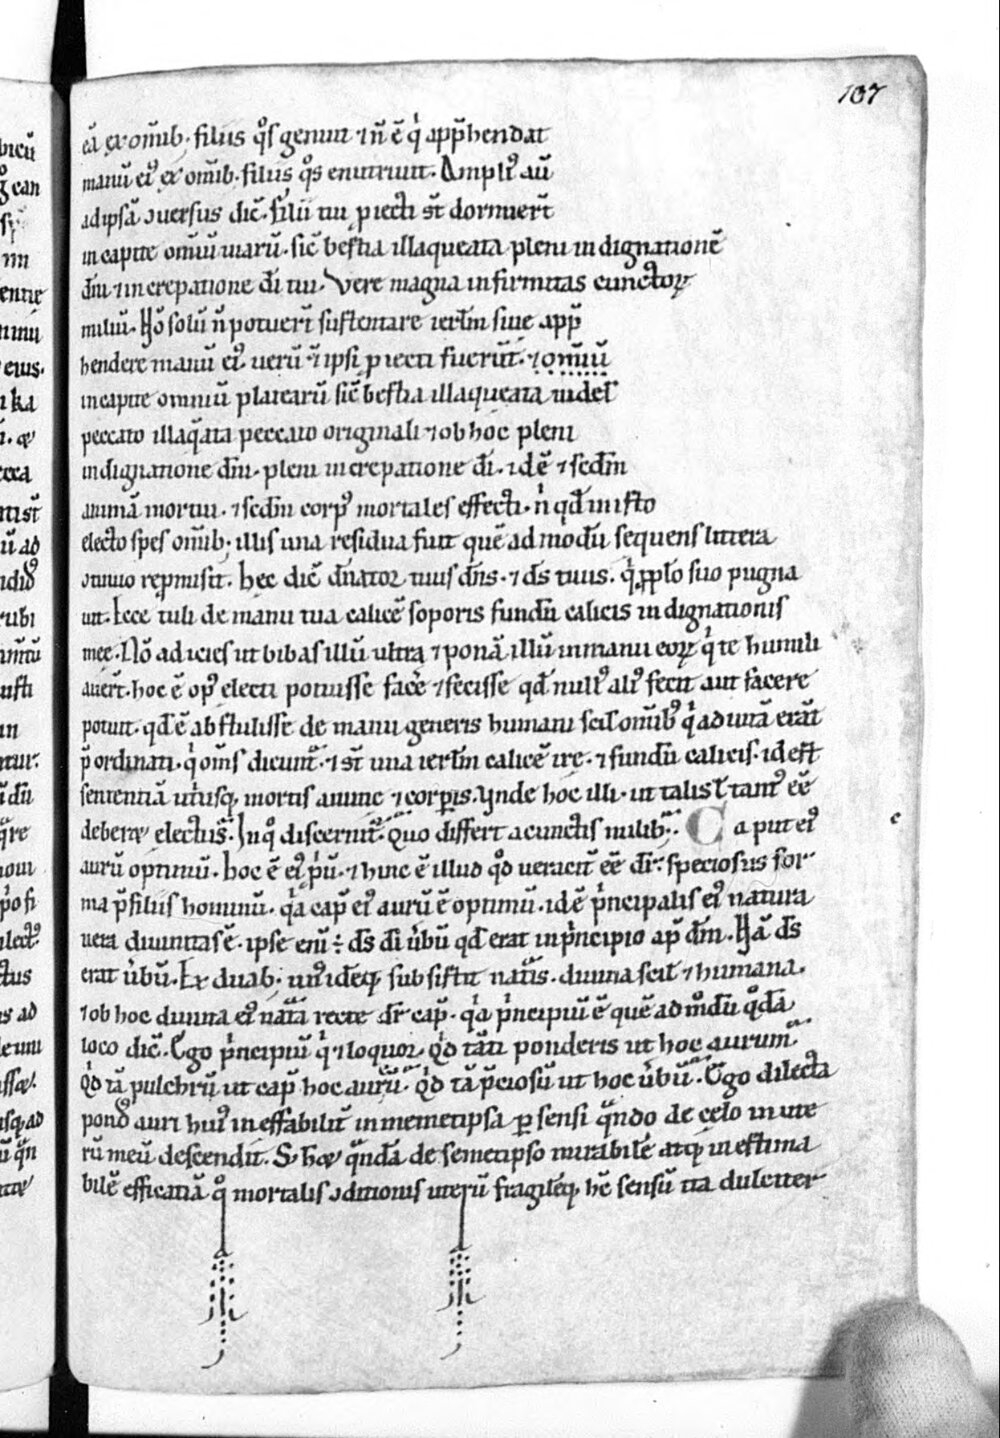 107
eā ex om̄ib; filiis q̊s genuit ⁊ n̄ ē q̇ app̄hendat
manū eiꝰ ex om̄ib; filiis q̊s enutriuit. Ampliꝰ aū
ad ipsā ꝯuersus dic̄. filii tui ꝓiecti st̄ dormiert̄
in capite om̄iū uiarū. sic̄ bestia illaqueata pleni indignationē
dn̄i ⁊ increpatione di̅ tui. Vere magna infirmitas cunctoꝝ
miliū. Nō solū n̄ potuert̄ sustentare ierl̄m siue app̄
hendere manū eiꝰ. uerū ⁊ ipsi ꝓiecti fuerūt. ⁊ om̄iū
in capite omniū platearū sic̄ bestia illaqueata uidel̄
peccato illaq̄ata peccato originali ⁊ ob hoc pleni
indignatione dn̄i. pleni increpatione di̅. idē ⁊ sc̄dm
animā mortui. ⁊ sc̄dm corpꝰ mortales effecti. n̄ qd̄ in isto
electo spes om̄ib; illis una residua fuit quē ad modū sequens littera
ꝯtinuo repmisit. hec dic̄ dn̄ator tuus dn̄s. ⁊ ds̄ tuus. q̇ ꝓ pplo suo pugna
uit. Ecce tuli de manu tua calicē soporis fundū calicis indignationis
mee. Nō adicies ut bibas illū ultra ⁊ ponā illū in manu eoꝝ q̇ te humili
auert̄. hoc ē opꝰ electi potuisse facē ⁊ fecisse qd̄ nullꝰ aliꝰ fecit aut facere
potuit. qd̄ ē abstulisse de manu generis humani scil̄ om̄ibꝰ q̇ ad uitā erāt
p̄ordinati. q̇ om̄s dicunt̄. ⁊ st̄ una ierl̄m calicē ire. ⁊ fundū calicis. id est
sententiā utriusq; mortis anime ⁊ corporis. Vnde hoc illi. ut talis l̄ tantꝰ eē
deberet electus. In q̊ discernit̄. Quo differt a cunctis milib;. Caput eiꝰ
aurū optimū. hoc ē eiꝰ p̄iū. ⁊ hinc ē illud q̊d ueracit̄ eē dr̄. speciosus for
ma p̄ filiis hominū. q̇a cap̄ eiꝰ aurū ē optimū. id ē p̄ncipalis eiꝰ natura
uera diuinitas ē. ipse enī ÷ ds̄ di̅ ūbū qd̄ erat in p̄ncipio ap̄ dm̄. Nā ds̄
erat ūbū. Ex duab; unꝰ idēq; subsistit nat̄is. diuina scil̄ ⁊ humana.
⁊ ob hoc diuina eiꝰ nat̄a recte dr̄ cap̄. q̇a p̄ncipiū ē quē ad mōdū q̊dā
loco dic̄. Ego p̄ncipiū q̇ ⁊ loquor. Q̇d tāti ponderis ut hoc aurum.
Q̇d tā pulchrū ut cap̄ hoc aurū. Q̇d tā p̄ciosū ut hoc ūbū. Ego dilecta
pondꝰ auri huiꝰ ineffabilit̄ in memetipsa ꝑsensi q̄ndo de celo in ute
rū meū descendit. S; hec q̄ndā de semetipso mirabilē atq; inestima
bilē efficatiā q̊ mortalis ꝯditionis uterū fragilēq; hc̄ sensū ita dulciter